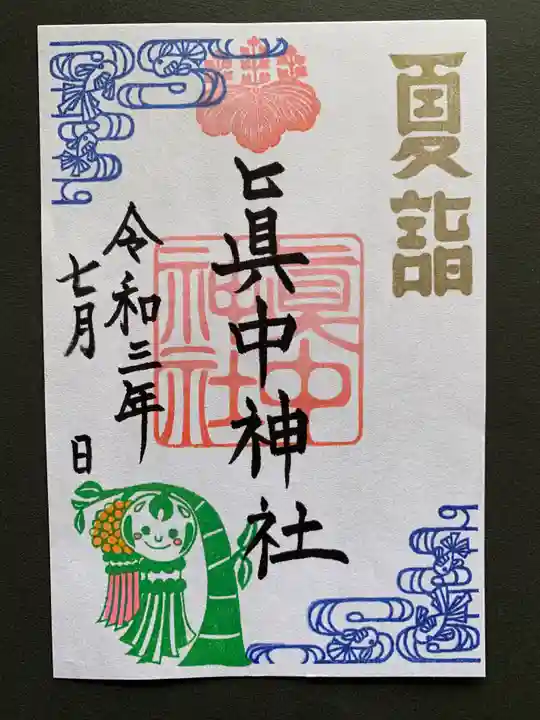 夏詣
眞中神社
眞中
神社
令和三年
七月 日